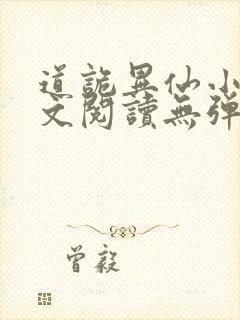 道詭異仙小
文閱讀無彈
曾毅